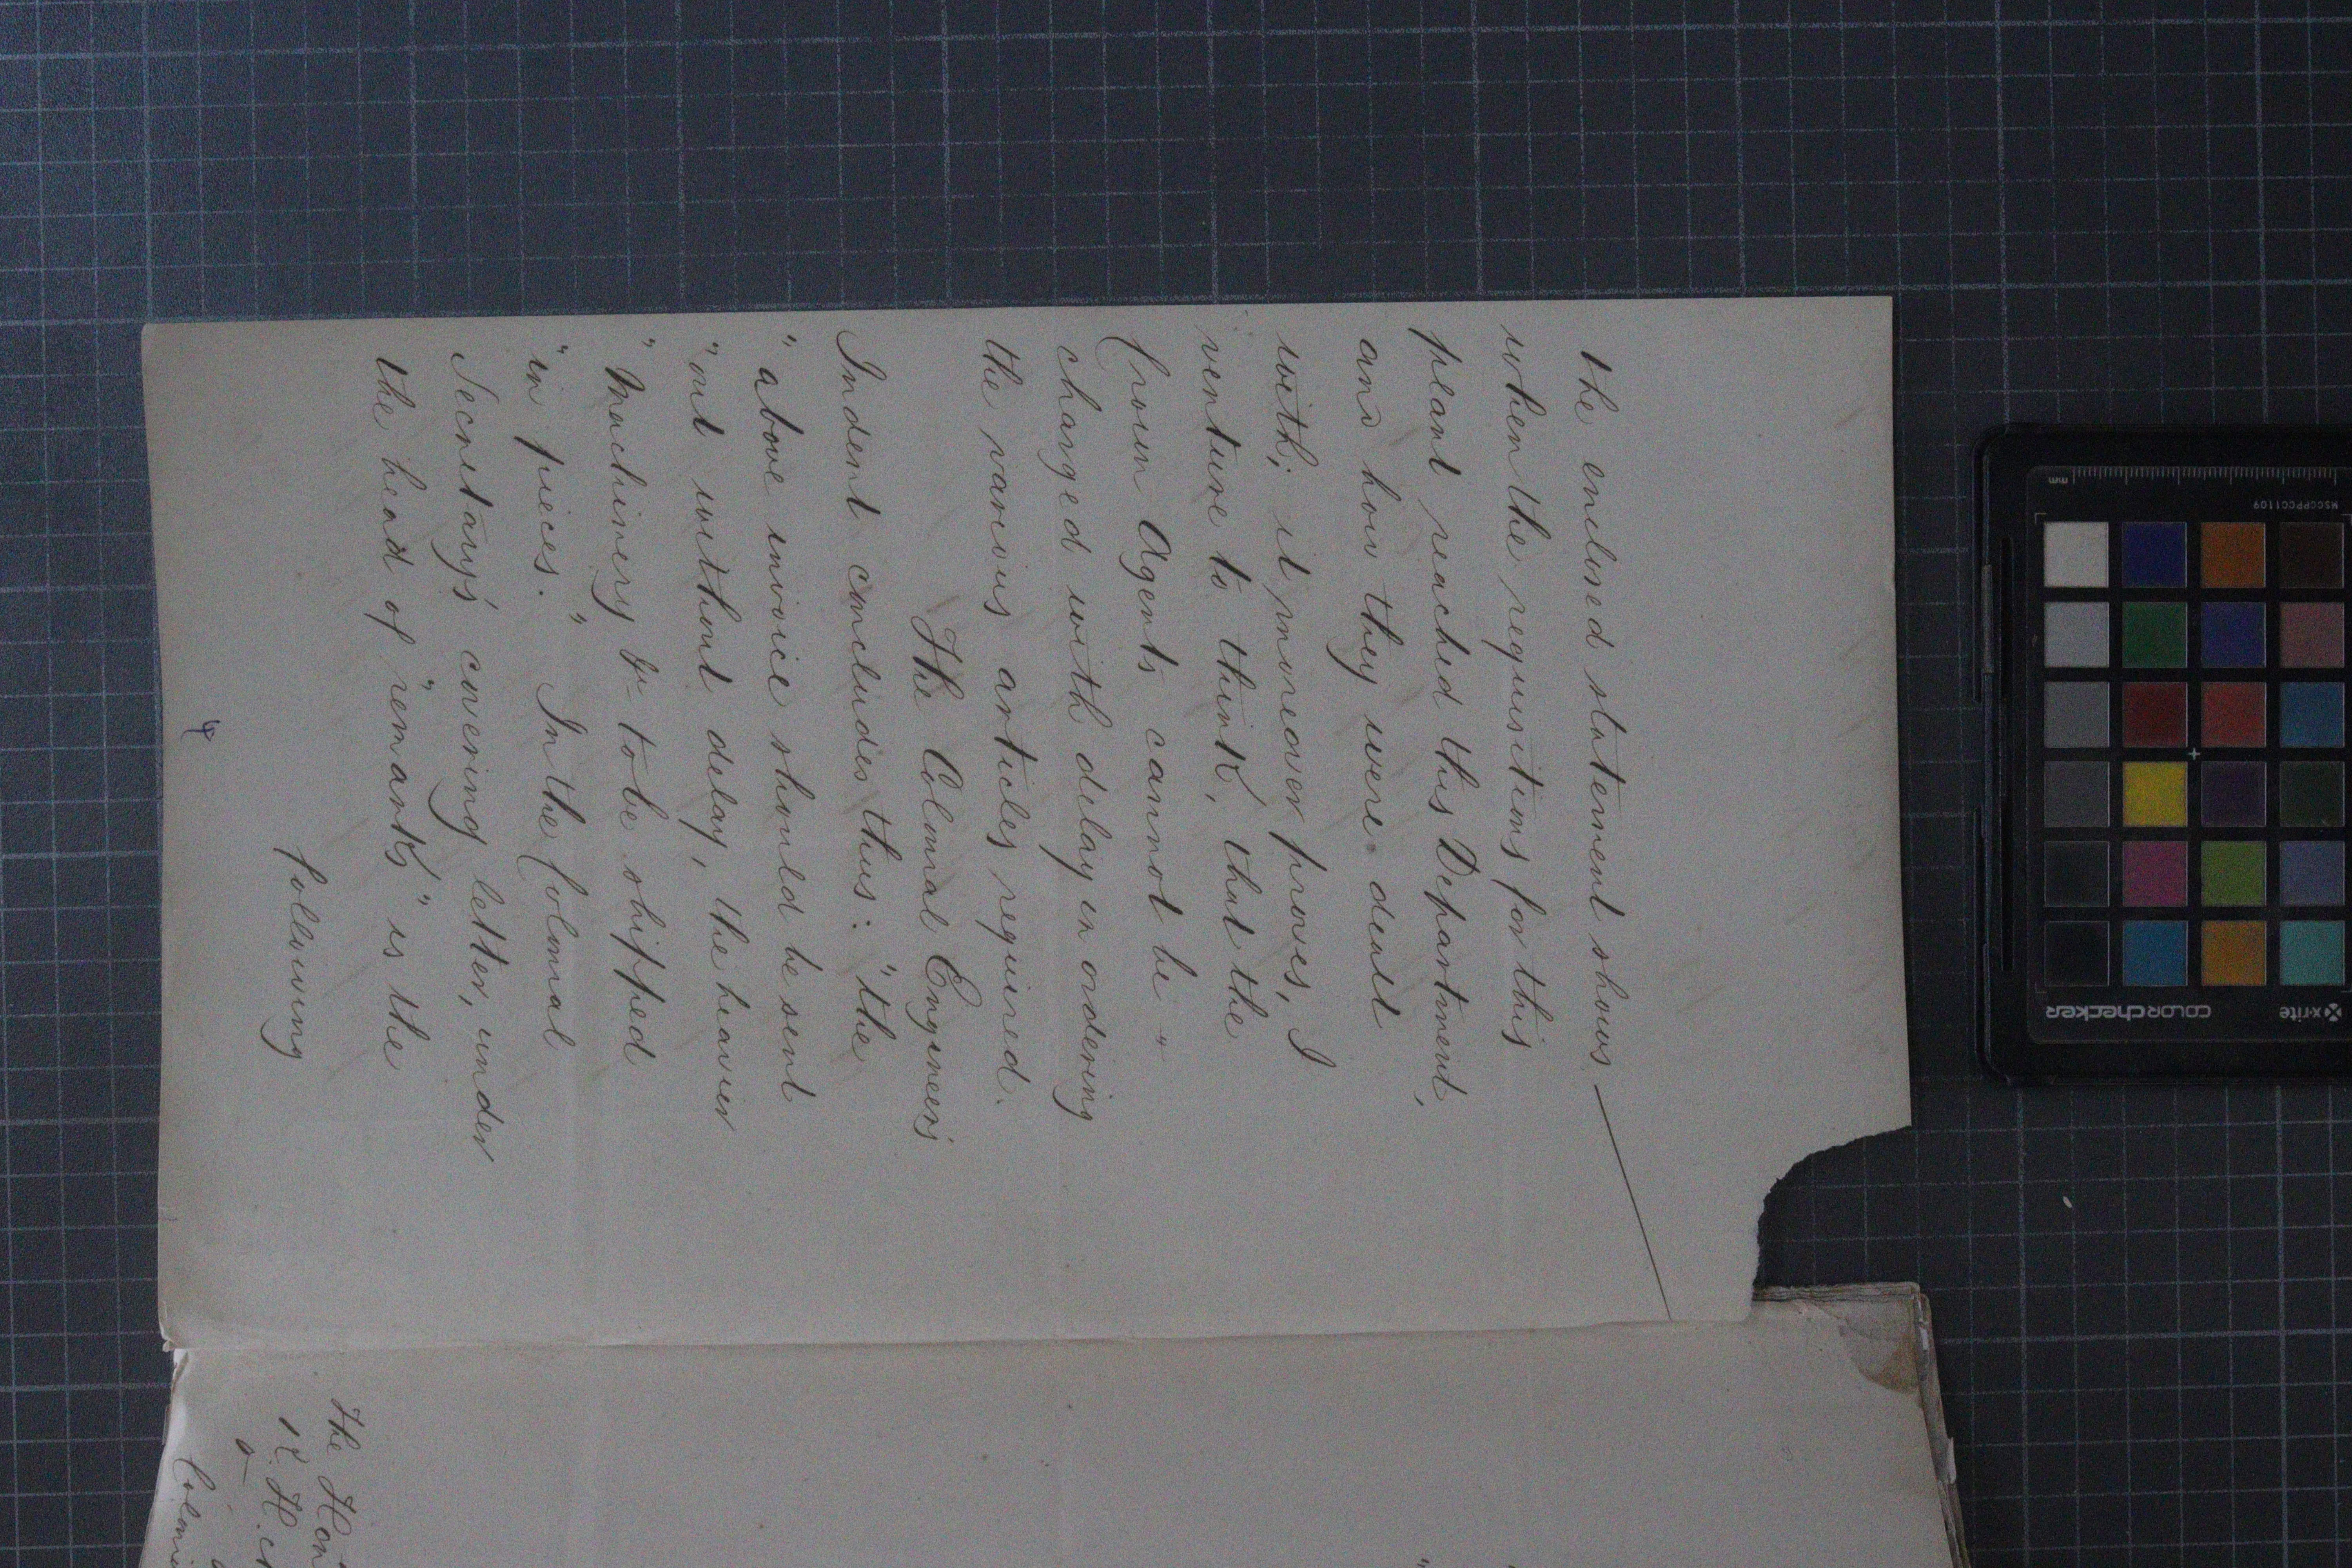 the enclosed statement shows
when the requisitions for this
plant reached this Department,
and how they were dealt
with; it moreover proves, I
venture to think, that the
Crown Agents cannot be "
charged with delay in ordering
the various articles required.
The Colonial Engineer's
Indent concludes thus: "the
"above invoice should be sent
"out without delay, the heavier
"Machinery &c to be shipped
"in pieces." In the Colonial
Secretary's covering letter, under
the head of "remarks" is the
following
4
The Hon
R. H.
x-rite
colorchecker
MSCCPPCC1109
mm